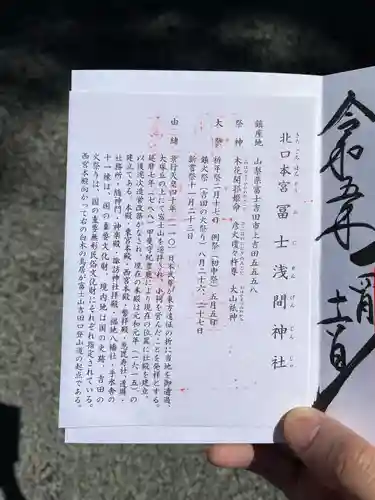 北口本宮 冨士浅間神社
きたぐちほんぐう ふじせんげんじんじゃ
鎮座地 山梨県富士吉田市上吉田五五五八
祭神 木花開耶姫命 彦火瓊々杵尊 大山祇神
大祭 祈年祭二月十七日 例祭(初申祭)五月五日
鎮火祭(吉田の火祭り)八月二十六・二十七日
新嘗祭十一月二十三日
由緒 景行天皇四十年(一一〇)日本武尊が東方遠征の折に当地を御通過、
大塚丘の上にて富士山を遥拝され、小祠を営んだこと発祥とする。
延暦七年(七八八)甲斐守紀豊庭により現在の位置に社殿を建立。
以後逐次造営改修がなされ、現在の本殿は元和元年(一六一五)の
建立である。本殿・東宮本殿・西宮本殿・幣拝殿・恵毘寿社・透塀・
社務所・随神門・神楽殿・諏訪神社拝殿・福地八幡社・手水舎の
十一棟は、国の重要文化財、境内地は国の史跡、吉田の
火祭りは、国の重要無形民俗文化財にそれぞれ指定されている。
西宮本殿向かって右の白木の鳥居が富士山吉田口登山道の起点である。
令和五年